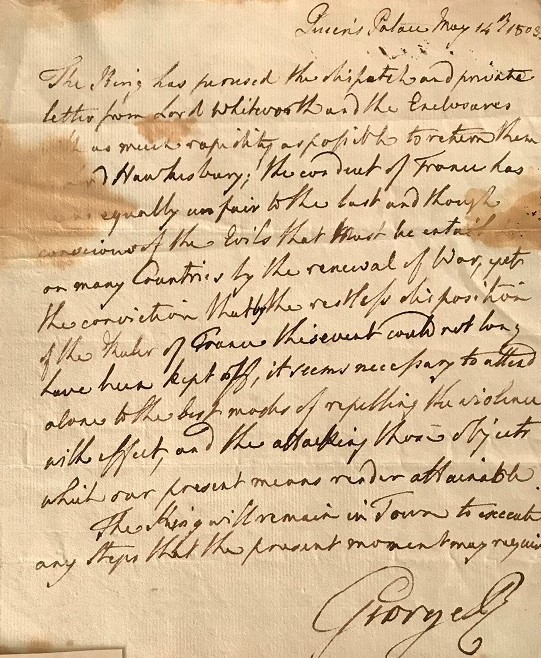 Queen's Palace May 14th 1803.
The King has perused the dispatch and private
letter from Lord Whitworth and the Enclosures
as much rapidity as possible to return them
Lord Hawkesbury; the conduct of France has
equally unfair to the last and though
conscious of the Evils that must be entail
on many Countries by the renewal of War, yet
the conviction that by the restless disposition
of the Ruler of France this event could not long
have been kept off, it seems necessary to attend
alone to the best modes of repelling the violence
with effect, and the attacking those objects
which our present means render attainable.
The King will remain in Town to execute
any Steps that the present moment may require
George R